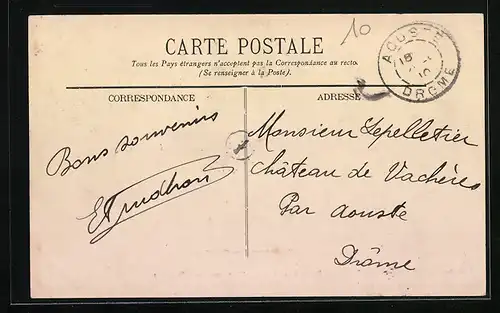 10
CARTE POSTALE
Tous les Pays étrangers n'acceptent pas la Correspondance au recto.
(Se renseigner à la Poste).
AOUSTE
18
10
DROME
CORRESPONDANCE
ADRESSE
Bons souvenirs
Monsieur Lepelletier
Château de Vachères
Par Aouste
Drôme